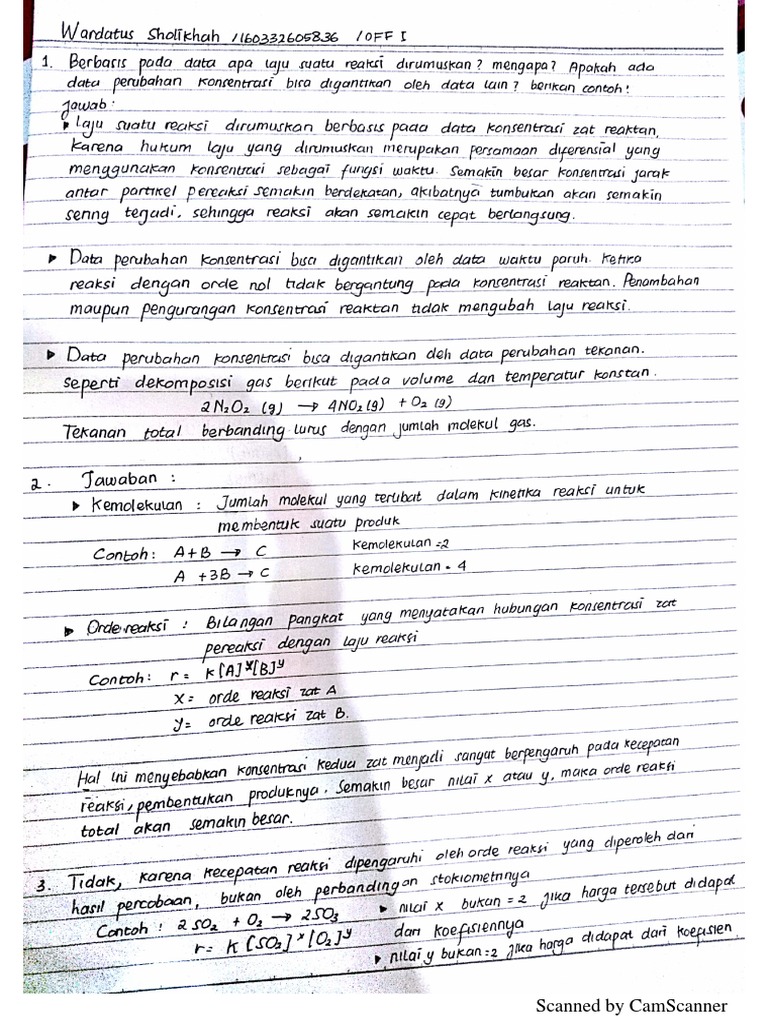 Wardatus Sholikhah /160332605836 /OFF I
1. Berbasis pada data apa laju suatu reaksi dirumuskan? mengapa? Apakah ada
data perubahan konsentrasi bisa digantikan oleh data lain? berikan contoh!
Jawab:
▸ Laju suatu reaksi dirumuskan berbasis pada data konsentrasi zat reaktan,
karena hukum laju yang dirumuskan merupakan persamaan diferensial yang
menggunakan konsentrasi sebagai fungsi waktu. Semakin besar konsentrasi jarak
antar partikel pereaksi semakin berdekatan, akibatnya tumbukan akan semakin
sering terjadi, sehingga reaksi akan semakin cepat berlangsung.
▸ Data perubahan konsentrasi bisa digantikan oleh data waktu paruh. Ketika
reaksi dengan orde nol tidak bergantung pada konsentrasi reaktan. Penambahan
maupun pengurangan konsentrasi reaktan tidak mengubah laju reaksi.
▸ Data perubahan konsentrasi bisa digantikan oleh data perubahan tekanan.
seperti dekomposisi gas berikut pada volume dan temperatur konstan.
2N₂O₂ (g) → 4NO₂(g) + O₂ (g)
Tekanan total berbanding lurus dengan jumlah molekul gas.
2. Jawaban :
▸ Kemolekulan : Jumlah molekul yang terlibat dalam kinetika reaksi untuk
membentuk suatu produk
Contoh: A+B → C kemolekulan =2
A +3B → C kemolekulan = 4
▸ Orde reaksi : Bilangan pangkat yang menyatakan hubungan konsentrasi zat
pereaksi dengan laju reaksi
Contoh: r = k[A]ˣ[B]ʸ
x = orde reaksi zat A
y = orde reaksi zat B.
Hal ini menyebabkan konsentrasi kedua zat menjadi sangat berpengaruh pada kecepatan
reaksi, pembentukan produknya. Semakin besar nilai x atau y, maka orde reaksi
total akan semakin besar.
3. Tidak, karena kecepatan reaksi dipengaruhi oleh orde reaksi yang diperoleh dari
hasil percobaan, bukan oleh perbandingan stokiometrinnya
Contoh : 2SO₂ + O₂ → 2SO₃ ▸ nilai x bukan = 2 jika harga tersebut didapat
r = k [SO₂]ˣ [O₂]ʸ dari koefisiennya
▸ nilai y bukan = 2 jika harga didapat dari koefisien
Scanned by CamScanner